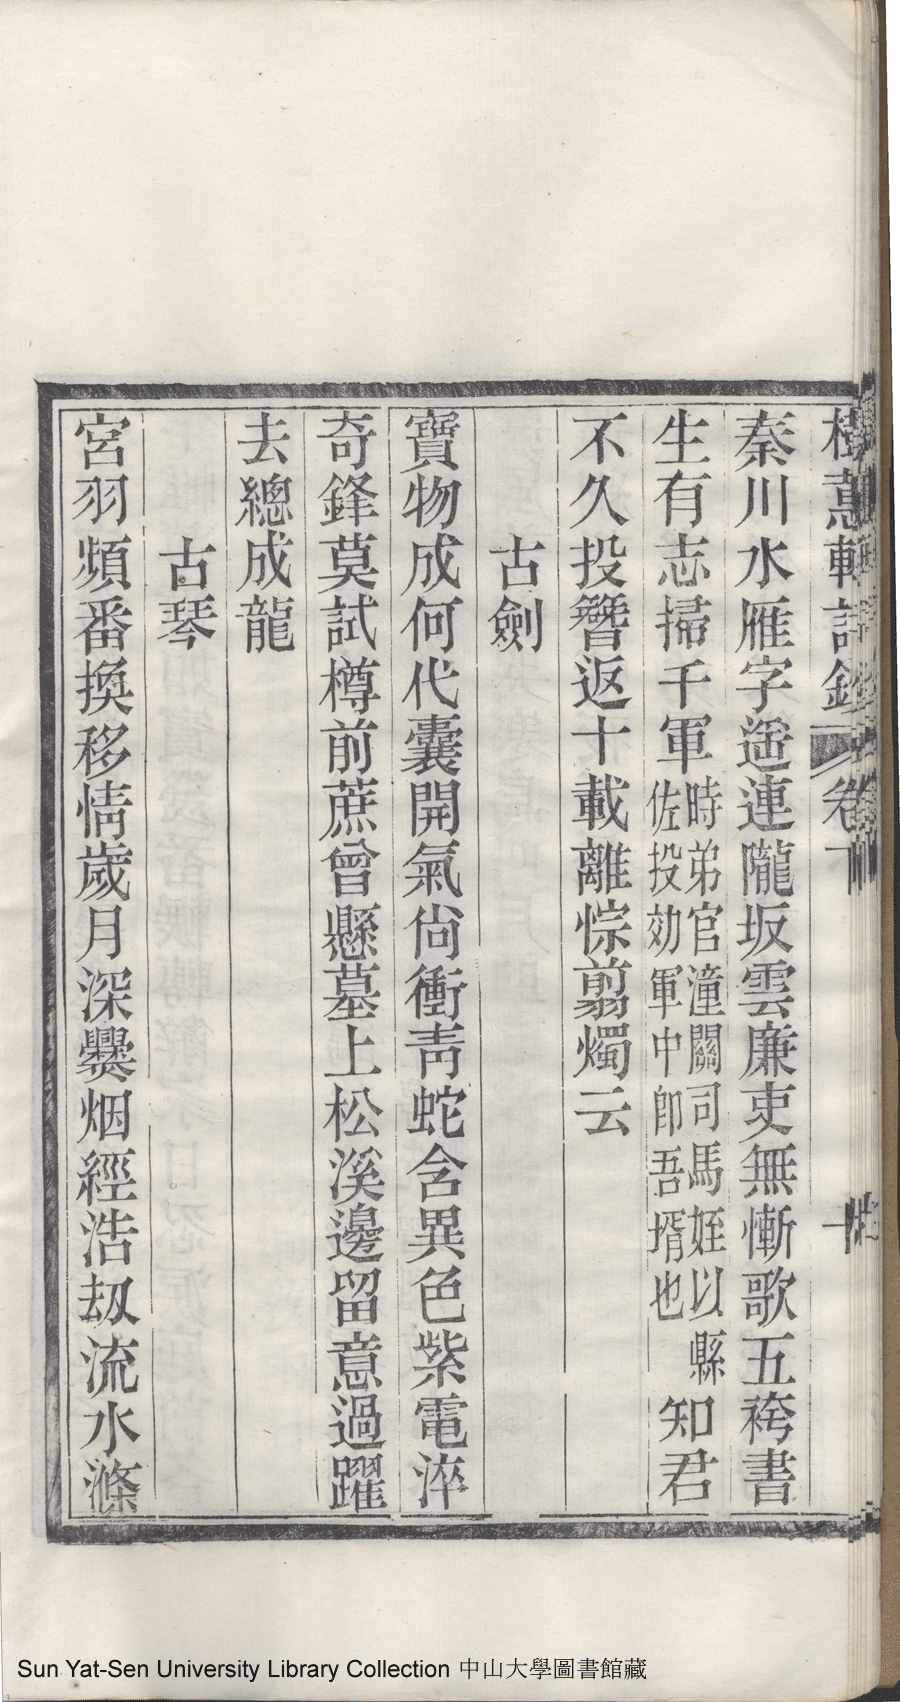 樹蕙軒詩鈔 卷下
秦川水雁字遥連隴坂雲廉吏無慚歌五袴書
生有志掃千軍時弟官潼關司馬姪以縣佐投効軍中卽吾壻也知君
不久投簪返十載離悰翦燭云
古劍
寶物成何代囊開氣尙衝靑蛇含異色紫電淬
奇鋒莫試樽前蔗曾懸墓上松溪邊留意過躍
去總成龍
古琴
宮羽頻番換移情歲月深爨烟經浩刼流水滌
Sun Yat-Sen University Library Collection 中山大學圖書館藏